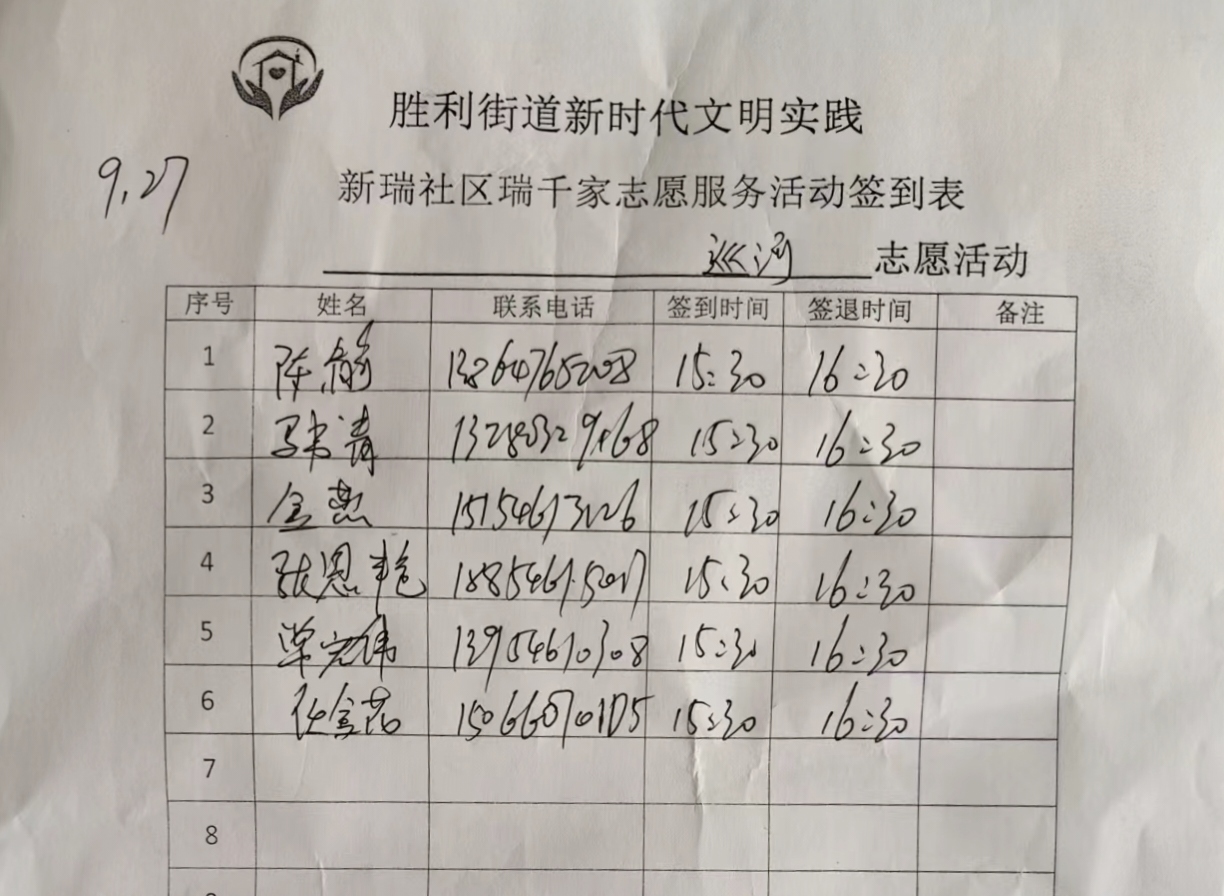 胜利街道新时代文明实践
9.27
新瑞社区瑞千家志愿服务活动签到表
巡河 志愿活动
序号 姓名 联系电话 签到时间 签退时间 备注
1 陈 15:30 16:30
2 青 15:30 16:30
3 金燕 15154673026 15:30 16:30
4 张恩艳 15:30 16:30
5 单宏伟 15:30 16:30
6 任金花 15:30 16:30
7
8